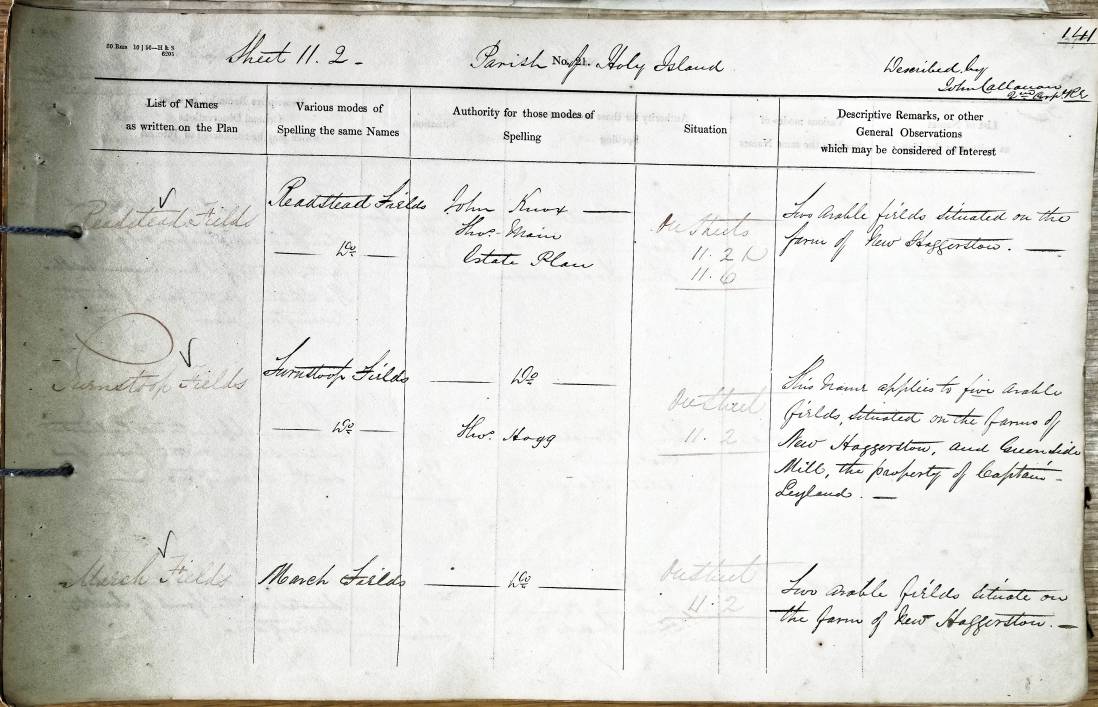 141
50 Rms 10 | 56—H & S
6205
Sheet 11. 2 - Parish No. of Holy Island
Described by
John Callanan
2nd Corpl RE
List of Names
as written on the Plan
Various modes of
Spelling the same Names
Authority for those modes of
Spelling
Situation
Descriptive Remarks, or other
General Observations
which may be considered of Interest
Readstead Fields
Readstead Fields
Do
John Knox
Thos. Main
Estate Plan
On Sheets
11. 2
11. 6
Two arable fields situated on the
farm of New Haggerston.
Turnstoop Fields
Turnstoop Fields
Do
Do
Thos. Hogg
On Sheet
11. 2
This name applies to five arable
fields, situated on the farms of
New Haggerston, and Greenside
Mill, the property of Captain
Leyland.
March Fields
March Fields
Do
On Sheet
11. 2
Two arable fields situate on
the farm of New Haggerston.